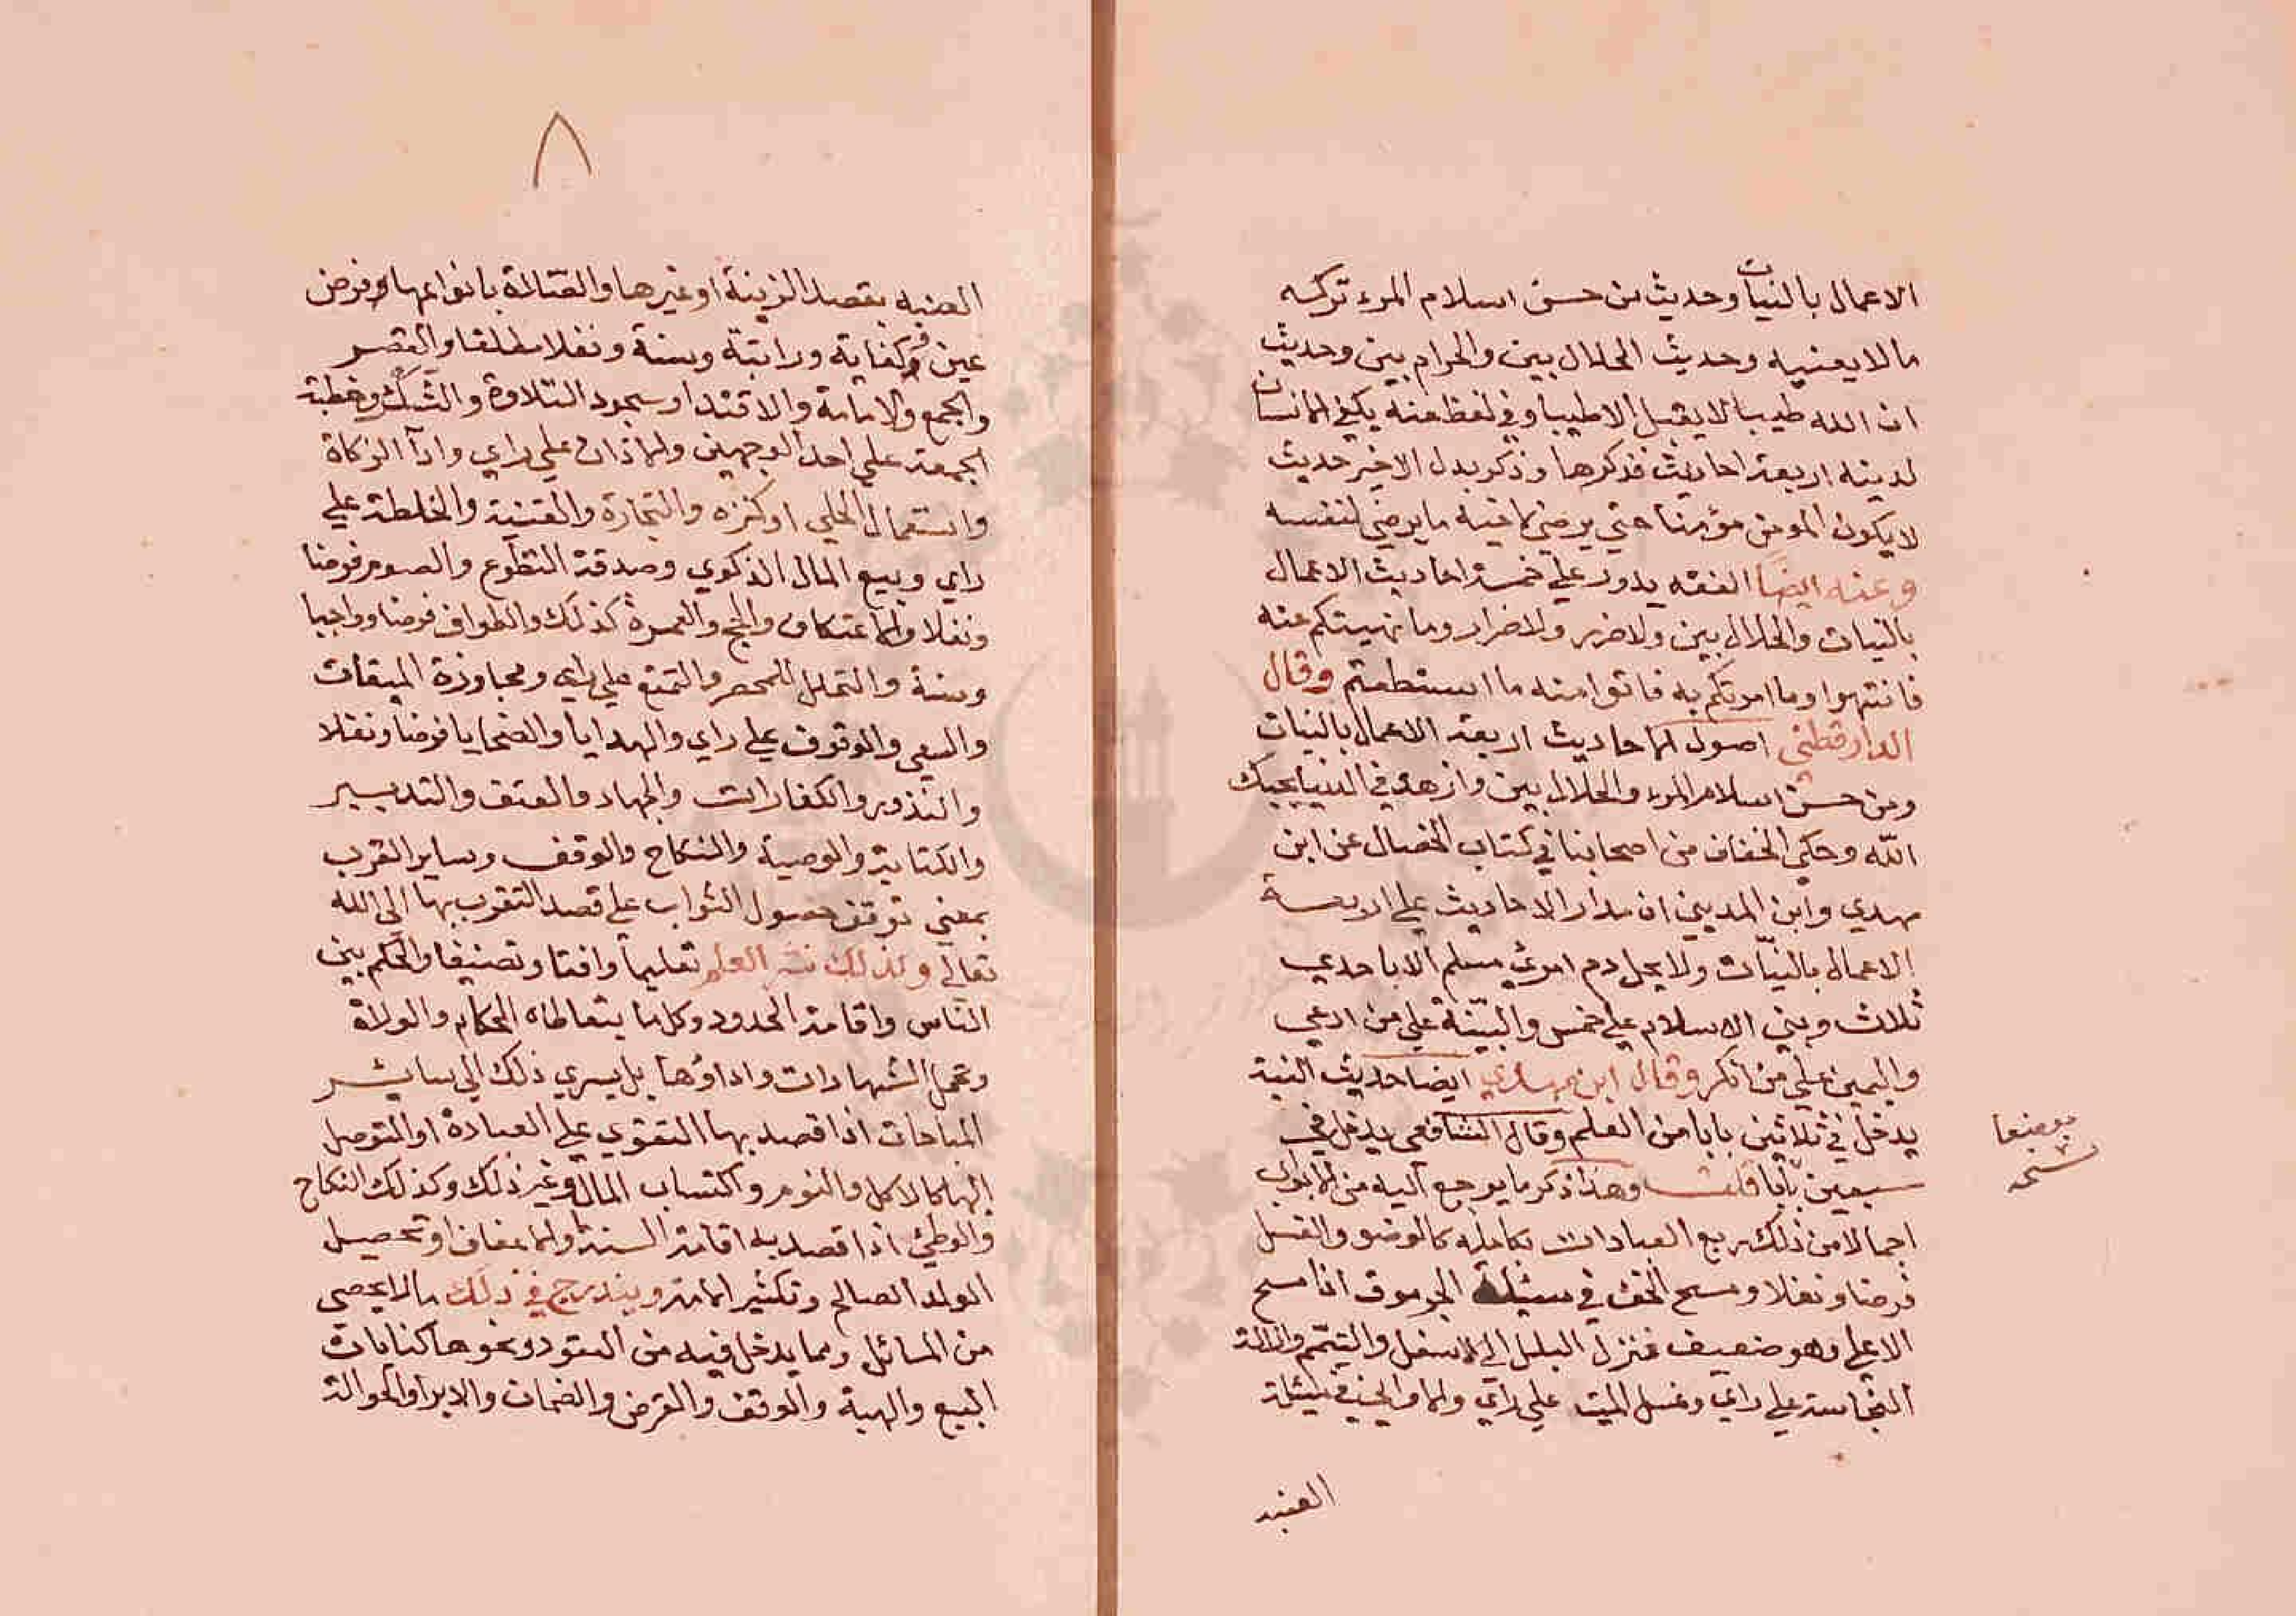 الاعمال بالنيات وحديث من حسن اسلام المرء تركه
ما لا يعنيه وحديث الحلال بين والحرام بين وحديث
ان الله طيب لا يقبل الا طيبا وفي لفظ عنه يكفي الانسان
لدينه اربعة احاديث فذكرها وذكر بدل الاخير حديث
لا يكون المومن مؤمنا حتي يرضي لاخيه ما يرضي لنفسه
وعنه ايضا الفقه يدور علي خمسة احاديث الاعمال
بالنيات والحلال بين ولا ضرر ولا ضرار وما نهيتكم عنه
فانتهوا وما امرتكم به فاتوا منه ما استطعتم وقال
الدارقطني اصول الاحاديث اربعة الاعمال بالنيات
ومن حسن اسلام المرء والحلال بين وازهد في الدنيا يحبك
الله وحكي الخفاف من اصحابنا في كتاب الخصال عن ابن
مهدي وابن المديني ان مدار الاحاديث علي اربعة
الاعمال بالنيات ولا يحل دم امرئ مسلم الا باحدي
ثلاث وبني الاسلام علي خمس والبينة علي من ادعي
واليمين علي من انكر وقال ابن مهدي ايضا حديث النية
يدخل في ثلاثين بابا من العلم وقال الشافعي يدخل في
سبعين بابا قلت وهذا ذكر ما يرجع اليه من الابواب
اجمالا من ذلك ربع العبادات بكامله كالوضو والغسل
فرضا ونفلا ومسح الخف في مسئلة الجرموق اذا مسح
الاعلي وهو ضعيف فنزل البلل الي الاسفل والتيمم وازالة
النجاسة علي راي وغسل الميت علي راي والاواني في مسئلة
موضعا
نسخه
الضبه
٨
الضبه بقصد الزينة او غيرها والصلاة بانواعها فرض
عين وكفاية وراتبة وسنة ونفلا مطلقا والقصر
والجمع والامامة والاقتدا وسجود التلاوة والشكر وخطبة
الجمعة علي احد الوجهين والاذان علي راي وادآ الزكاة
واستعمال الحلي او كنزه والتجارة والقنية والخلطة علي
راي وبيع المال الزكوي وصدقة التطوع والصوم فرضا
ونفلا والاعتكاف والحج والعمرة كذلك والطواف فرضا وواجبا
وسنة والتحلل للمحصر والتمتع علي راي ومجاوزة الميقات
والسعي والوقوف علي راي والهدايا والضحايا فرضا ونفلا
والنذور والكفارات والجهاد والعتق والتدبير
والكتابة والوصية والنكاح والوقف وساير القرب
بمعني توقف حصول الثواب علي قصد التقرب بها الي الله
تعالي وكذلك نشر العلم تعليما وافتا وتصنيفا والحكم بين
الناس واقامة الحدود وكلما يتعاطاه الحكام والولاة
وتحمل الشهادات واداؤها بل يسري ذلك الي سائر
المباحات اذا قصد بها التقوي علي العبادة او التوصل
اليها كالاكل والنوم واكتساب المال وغير ذلك وكذلك النكاح
والوطئ اذا قصد به اقامة السنة والاعفاف او تحصيل
الولد الصالح وتكثير الامة ويندرج في ذلك ما لا يحصي
من المسائل ومما يدخل فيه من العقود ونحوها كنايات
البيع والهبة والوقف والقرض والضمان والابرا والحوالة